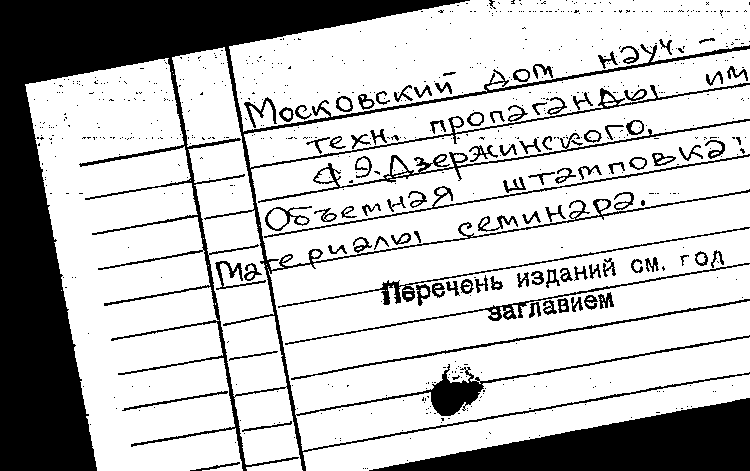 Московский дом науч.-
техн. пропаганды им
Ф.Э.Дзержинского.
Объемная штамповка:
Материалы семинара.
Перечень изданий см. год
заглавием